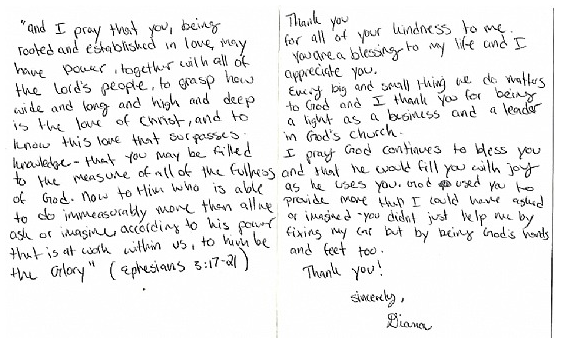 "and I pray that you, being
rooted and established in love, may
have power, together with all of
the Lord's people, to grasp how
wide and long and high and deep
is the love of Christ, and to
know this love that surpasses
knowledge - that you may be filled
to the measure of all of the fullness
of God. Now to Him who is able
to do immeasurably more than all we
ask or imagine, according to his power
that is at work within us, to him be
the Glory" (Ephesians 3:17-21)
Thank you
for all of your kindness to me.
You are a blessing to my life and I
appreciate you.
Every big and small thing we do matters
to God and I thank you for being
a light as a business and a leader
in God's church.
I pray God continues to bless you
and that he would fill you with joy
as he uses you. God used you to
provide more that I could have asked
or imagined - you didn't just help me by
fixing my car but by being God's hands
and feet too.
Thank you!
Sincerely,
Diana